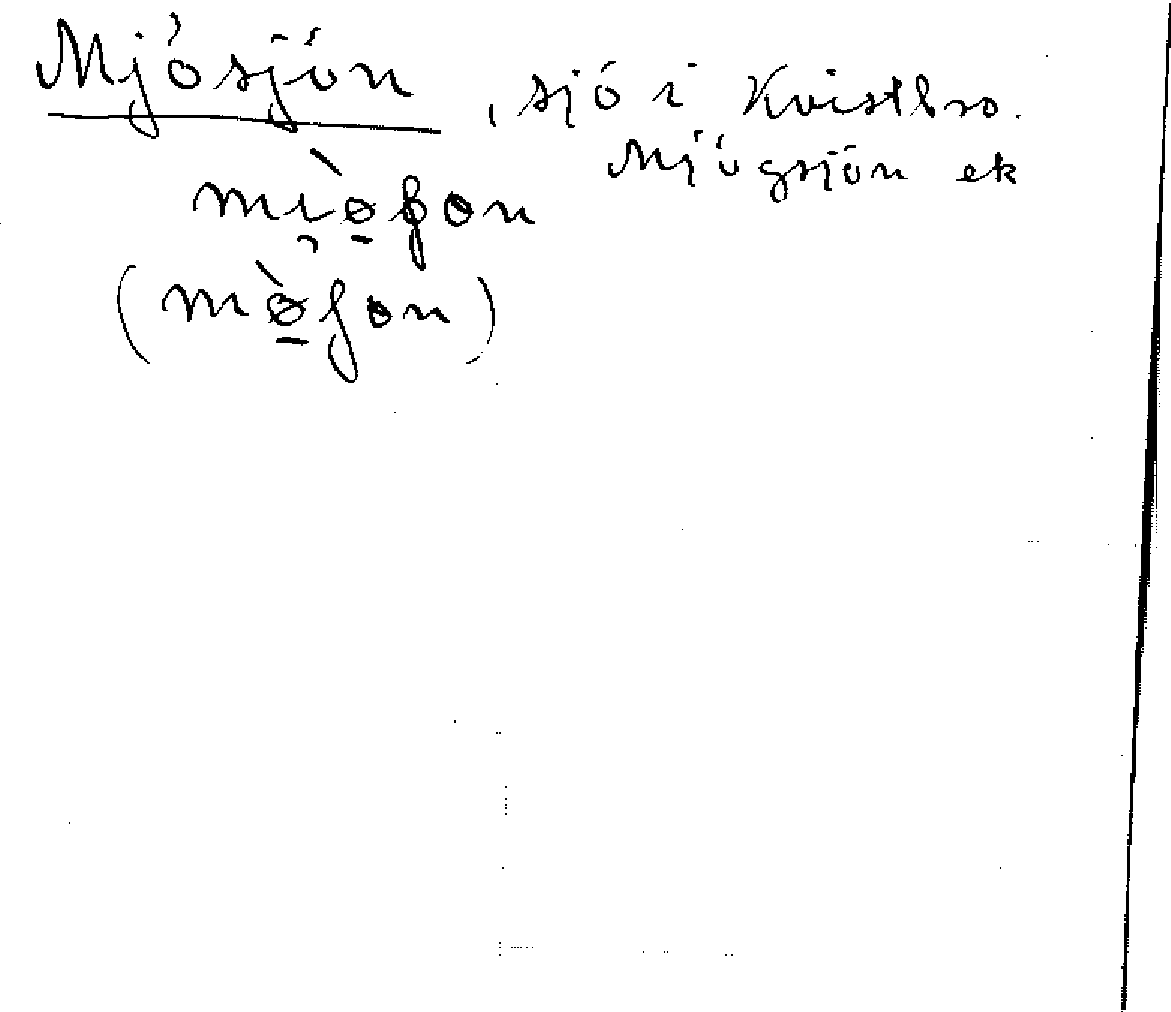 Mjösjön, sjö i Kvistbro.
Mjögsjön ek
mi̯ø̱̀ʃɵn
(mø̱̀ʃɵn)